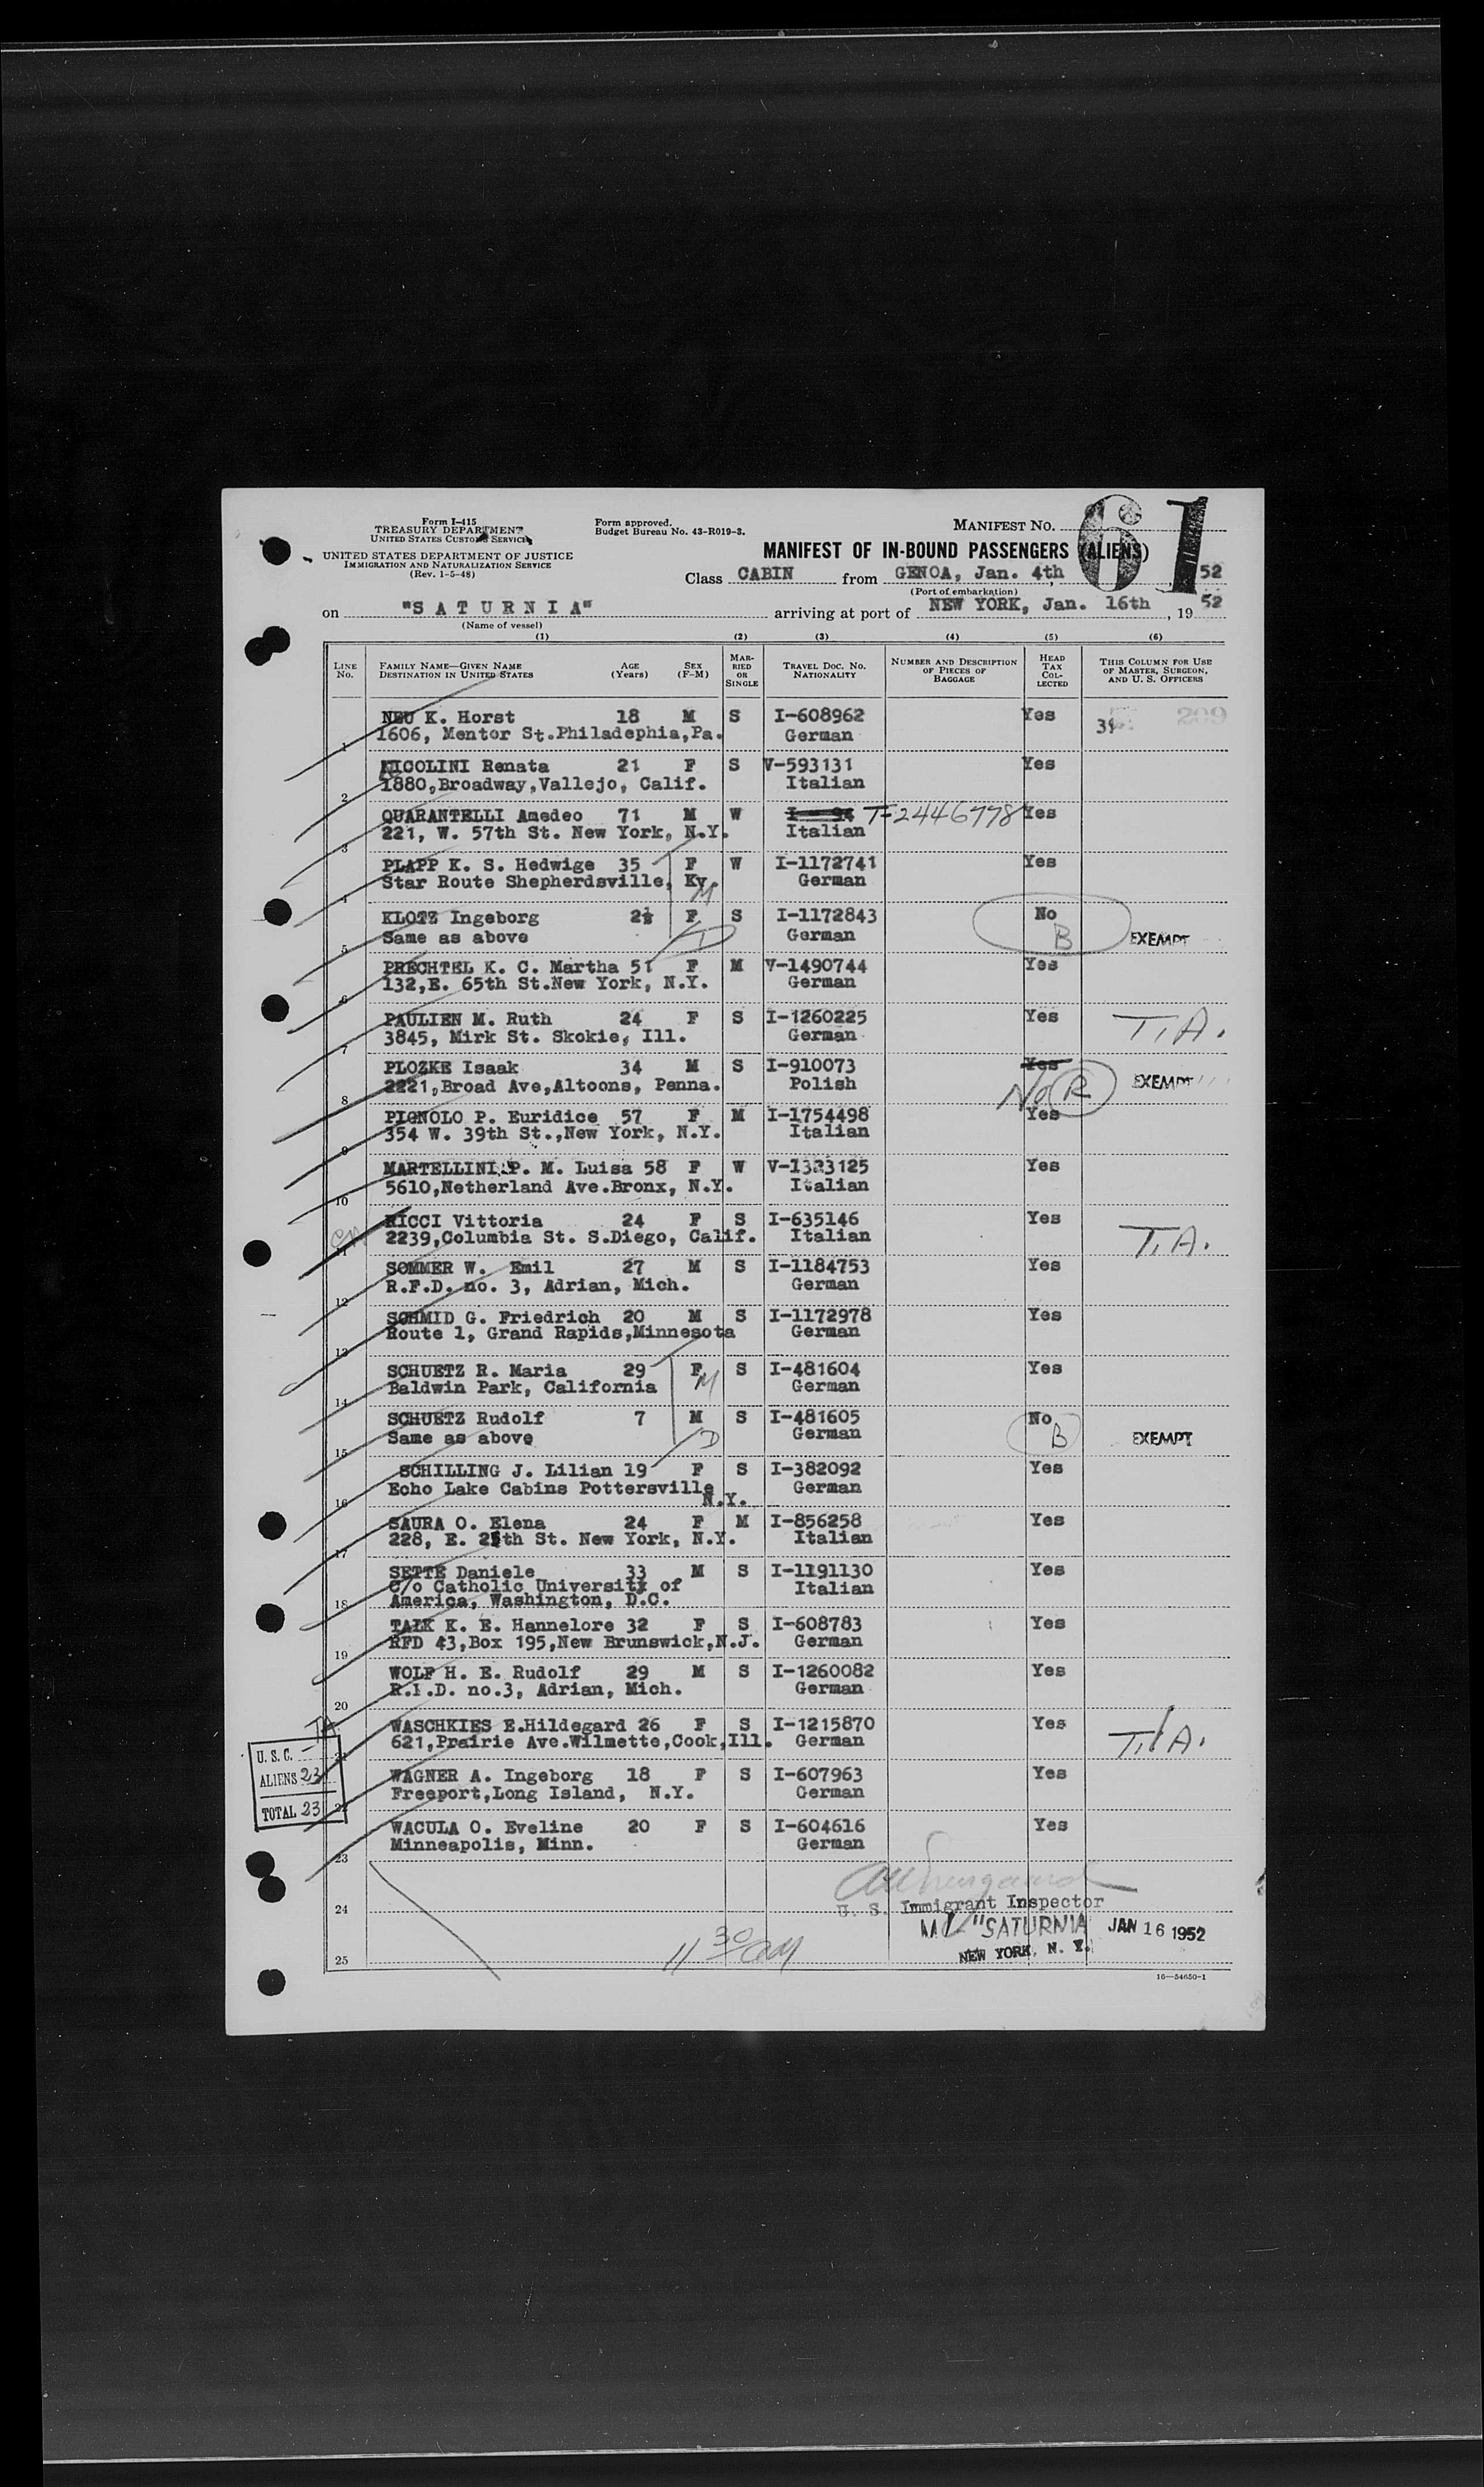 Form I-415
TREASURY DEPARTMENT
UNITED STATES CUSTOMS SERVICE
UNITED STATES DEPARTMENT OF JUSTICE
IMMIGRATION AND NATURALIZATION SERVICE
(Rev. 1-5-48)
Form approved.
Budget Bureau No. 43-R019-3.
MANIFEST NO. 61
MANIFEST OF IN-BOUND PASSENGERS (ALIENS)
Class CABIN from GENOA, Jan. 4th, 52
(Port of embarkation)
on "S A T U R N I A" arriving at port of NEW YORK, Jan. 16th, 1952
(Name of vessel)
(1) (2) (3) (4) (5) (6)
LINE NO. FAMILY NAME—GIVEN NAME DESTINATION IN UNITED STATES AGE (Years) SEX (F-M) MARRIED OR SINGLE TRAVEL DOC. NO. NATIONALITY NUMBER AND DESCRIPTION OF PIECES OF BAGGAGE HEAD TAX COLLECTED THIS COLUMN FOR USE OF MASTER, SURGEON, AND U. S. OFFICERS
NEU K. Horst 18 M S I-608962 Yes 209
1 1606, Mentor St.Philadephia,Pa. German
NICOLINI Renata 21 F S V-593131 Yes
2 1880,Broadway,Vallejo, Calif. Italian
QUARANTELLI Amedeo 71 M W T-2446778 Yes
3 221, W. 57th St. New York, N.Y. Italian
PLAPP K. S. Hedwige 35 F W I-1172741 Yes
4 Star Route Shepherdsville, Ky. German
M
KLOTZ Ingeborg 2½ F S I-1172843 No
5 Same as above German B EXEMPT
D
PRECHTEL K. C. Martha 51 F M V-1490744 Yes
6 132,E. 65th St.New York, N.Y. German
PAULIEN M. Ruth 24 F S I-1260225 Yes T.A.
7 3845, Mirk St. Skokie, Ill. German
PLOZKE Isaak 34 M S I-910073 Yes
8 2221,Broad Ave,Altoona, Penna. Polish No R EXEMPT
PIGNOLO P. Euridice 57 F M I-1754498 Yes
9 354 W. 39th St.,New York, N.Y. Italian
MARTELLINI P. M. Luisa 58 F W V-1323125 Yes
10 5610,Netherland Ave.Bronx, N.Y. Italian
RICCI Vittoria 24 F S I-635146 Yes T.A.
11 2239,Columbia St. S.Diego, Calif. Italian
SOMMER W. Emil 27 M S I-1184753 Yes
12 R.F.D. no. 3, Adrian, Mich. German
SCHMID G. Friedrich 20 M S I-1172978 Yes
13 Route 1, Grand Rapids,Minnesota German
SCHUETZ R. Maria 29 F S I-481604 Yes
14 Baldwin Park, California German
M
SCHUETZ Rudolf 7 M S I-481605 No
15 Same as above German B EXEMPT
D
SCHILLING J. Lilian 19 F S I-382092 Yes
16 Echo Lake Cabins Pottersville German
N.Y.
SAURA O. Elena 24 F M I-856258 Yes
17 228, E. 25th St. New York, N.Y. Italian
SETTE Daniele 33 M S I-1191130 Yes
C/o Catholic University of Italian
18 America, Washington, D.C.
TALK K. E. Hannelore 32 F S I-608783 Yes
19 RFD 43,Box 195,New Brunswick,N.J. German
WOLF H. E. Rudolf 29 M S I-1260082 Yes
20 R.I.D. no.3, Adrian, Mich. German
WASCHKIES E.Hildegard 26 F S I-1215870 Yes T.A.
21 621,Prairie Ave.Wilmette,Cook,Ill. German
WAGNER A. Ingeborg 18 F S I-607963 Yes
22 Freeport,Long Island, N.Y. German
WACULA O. Eveline 20 F S I-604616 Yes
23 Minneapolis, Minn. German
U. S. C. —
ALIENS 23
TOTAL 23
24
U. S. Immigrant Inspector
"SATURNIA JAN 16 1952
NEW YORK, N. Y.
25
11 30 AM
16—54650-1